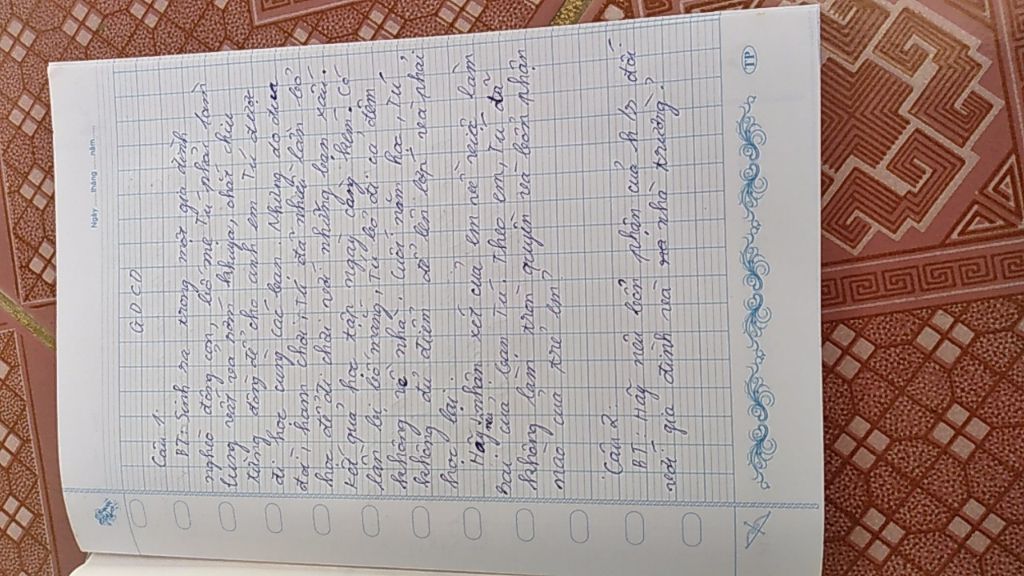 Ngày ..... tháng ..... năm .....
GDCD
Câu 1:
BT: Sinh ra trong một gia đình
nghèo đông con, bố mẹ Tú phải làm
lụng vất vả sớm khuya, chắt chiu
từng đồng để cho anh em Tú được
đi học cùng các bạn. Nhưng do đua
đòi, ham chơi, Tú đã nhiều lần bỏ
học để đi chơi với những bạn xấu.
Kết quả học tập ngày càng kém. Có
lần bị bố mắng, Tú bỏ đi cả đêm
không về nhà. Cuối năm học, Tú
không đủ điểm để lên lớp và phải
học lại.
Hãy nêu nhận xét của em về việc làm
sai của bạn Tú. Theo em, Tú đã
không làm tròn quyền và bổn phận
nào của trẻ em?
Câu 2:
BT: Hãy nêu bổn phận của h/s đối
với gia đình và nhà trường.
TP